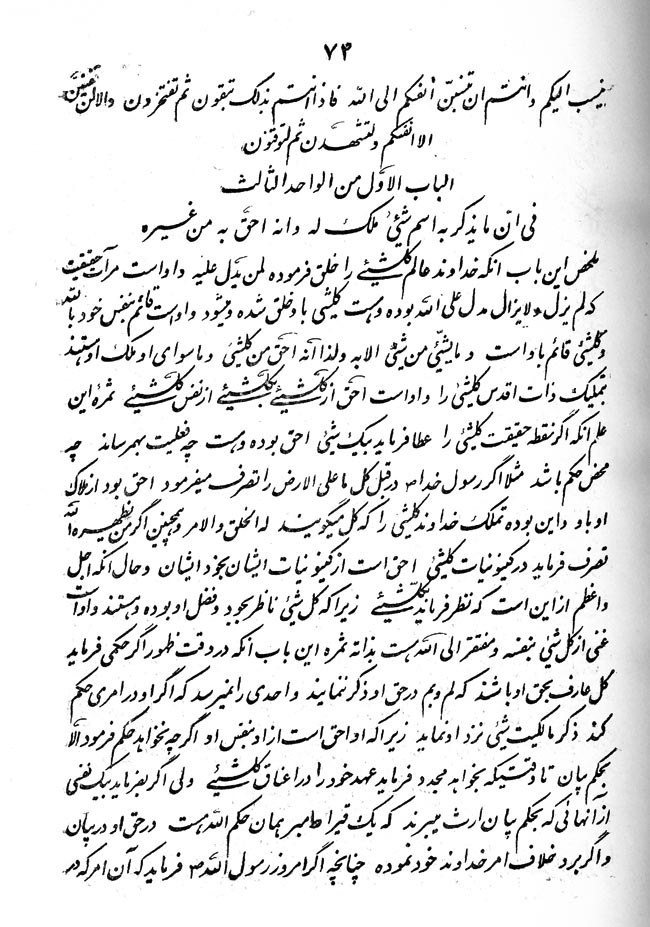 ٧٤
ینسب الیکم وانتم ان تنسبن انفسکم الی الله فاذا انتم بذلک تبقون ثم تفتخرون والا لن تفنین
الا انفسکم ولتشهدن ثم لتوقنون
الباب الاول من الواحد الثالث
فی ان ما یذکر به اسم شیئ ملک له وانه احق به من غیره
ملخص این باب آنکه خداوند عالم کلشیئ را خلق فرموده لمن یدل علیه و او است مرآت حقیقت
که لم یزل و لایزال مدل علی الله بوده و هست کلشیئ باو خلق شده و میشود و او است قائم بنفس خود بالله
و کلشیئ قائم باو است و ما یشیئ من شیئ الا به ولذا انه احق من کلشیئ و ما سوای او ملک او هستند
بتملیک ذات اقدس کلشیئ را و او است احق از کلشیئ بکلشیئ از نفس کلشیئ ثمره این
علم آنکه اگر نقطه حقیقت کلشیئ را عطا فرماید بیک شیئ احق بوده و هست چه فعلیت بهم رساند چه
محض حکم باشد مثلا اگر رسول خدا ص در قبل کل ما علی الارض را تصرف میفرمود احق بود از ملاک
او باو و این بوده تملک خداوند کلشیئ را که کل میگویند له الخلق والامر و همچنین اگر من یظهره الله
تصرف فرماید در کینونیات کلشیئ احق است از کینونیات ایشان بخود ایشان و حال آنکه اجل
و اعظم از این است که نظر فرماید بکلشیئ زیرا که کل شیئ ناظر بجود و فضل او بوده و هستند و او است
غنی از کل شیئ بنفسه و مفتقر الی الله هست بذاته ثمره این باب آنکه در وقت ظهور اگر حکمی فرماید
کل عارف بحق او باشند که لم و بم در حق او ذکر ننمایند و احدی را نمیرسد که اگر او در امری حکم
کند ذکر مالکیت شیئ نزد او نماید زیرا که او احق است از او بنفس او اگر چه بخواهد حکم فرمود الا
بحکم بیان تا وقتیکه بخواهد مجدد فرماید عهد خود را در اعناق کلشیئ ولی اگر بفرماید بیک نفسی
از آنهائی که بحکم بیان ارث میبرند که یک قیراط مبر همان حکم الله هست در حق او در بیان
و اگر برد خلاف امر خداوند خود نموده چنانچه اگر امروز رسول الله ص فرماید که آن امر که در